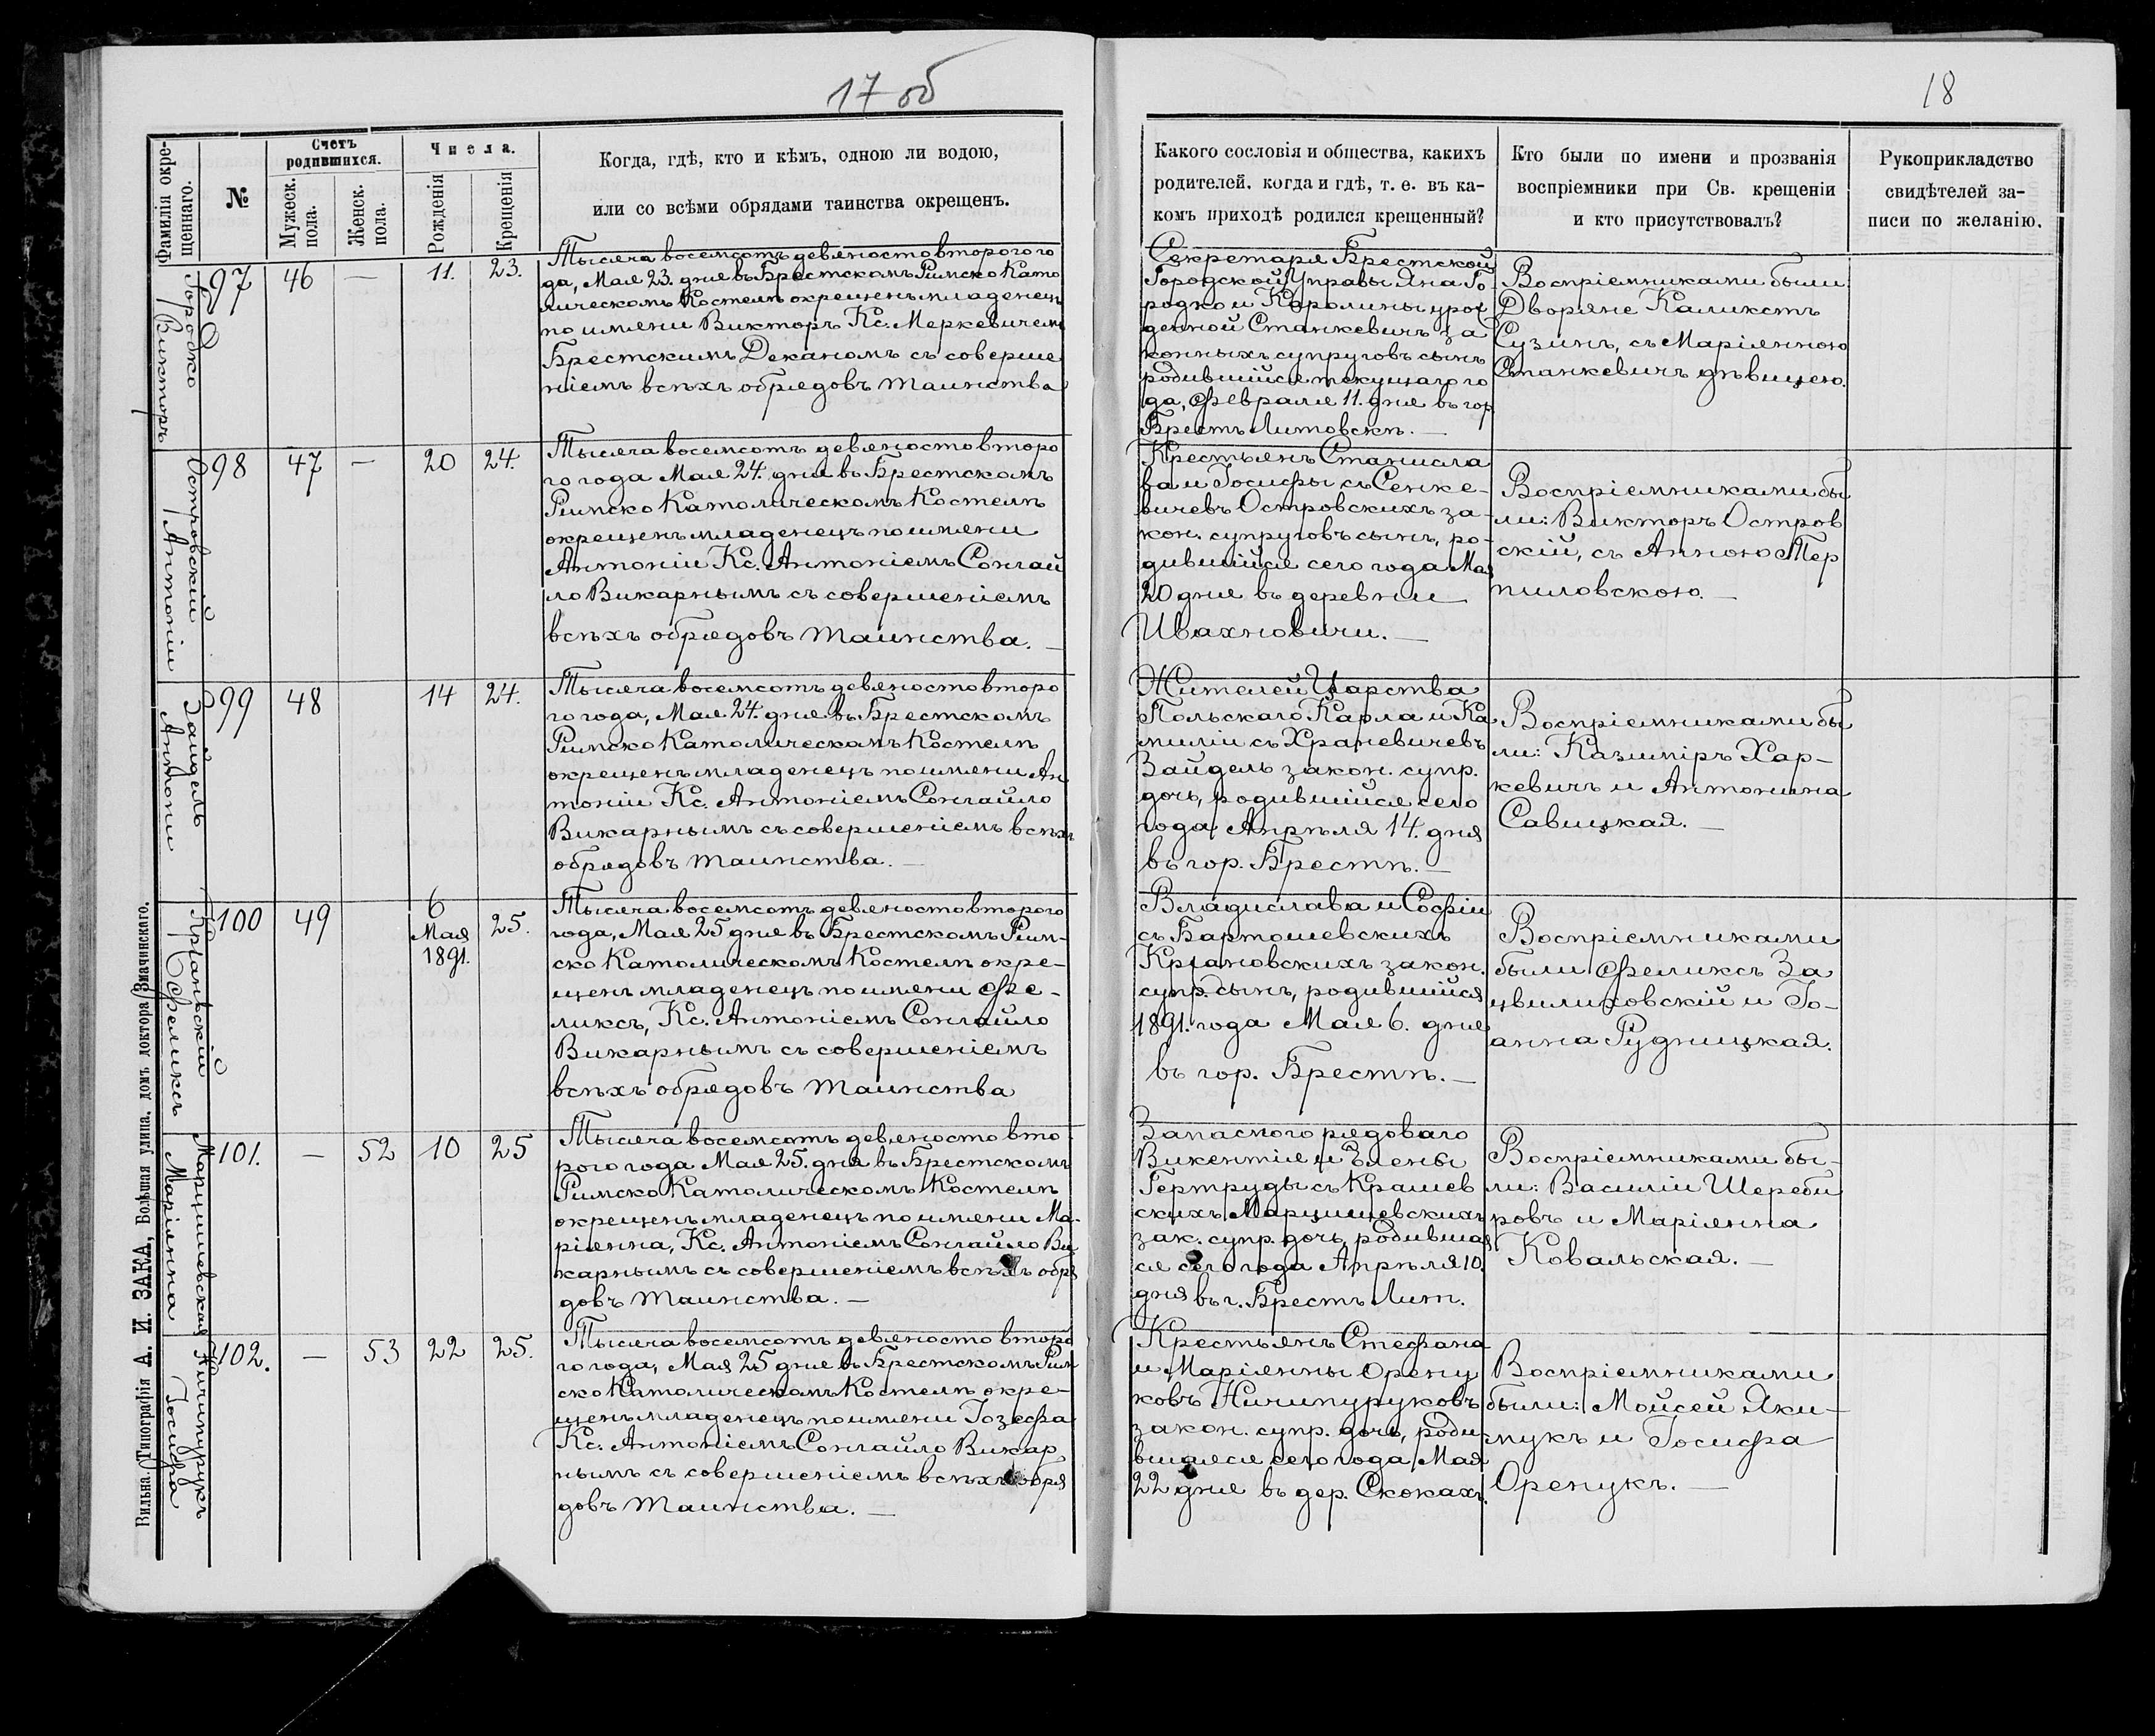 17 об
18
Фамилія окре-
щеннаго.
№
Счетъ
родившихся.
Мужеск.
пола.
Женск.
пола.
Числа.
Рожденія
Крещенія
Когда, гдѣ, кто и кѣмъ, одною ли водою,
или со всѣми обрядами таинства окрещенъ.
Какого сословія и общества, какихъ
родителей, когда и гдѣ, т. е. въ ка-
комъ приходѣ родился крещенный?
Кто были по имени и прозванія
воспріемники при Св. крещеніи
и кто присутствовалъ?
Рукоприкладство
свидѣтелей за-
писи по желанію.
Городко
Викторъ
97 46 — 11. 23.
Тысяча восемсотъ девяносто второго го
да, Мая 23. дня въ Брестскомъ Римско Като
лическомъ Костелѣ окрещенъ младенецъ
по имени Викторъ Кс. Меркевичемъ
Брестскимъ Деканомъ съ соверше
ніемъ всѣхъ обрядовъ таинства
Секретаря Брестской
Городской Управы Яна Го-
родко и Каролины урож
денной Станкевичъ за
конныхъ супруговъ сынъ
родившійся текущаго го
да, Февраля 11. дня въ гор.
Брестъ Литовскѣ. —
Воспріемниками были
Дворяне Каликстъ
Сузинъ, съ Маріянною
Станкевичъ дѣвицею.
Островскій
Антоній
98 47 — 20 24.
Тысяча восемсотъ девяносто второ
го года Мая 24. дня въ Брестскомъ
Римско Католическомъ Костелѣ
окрещенъ младенецъ по имени
Антоній Кс. Антоніемъ Сонгай
ло Викарнымъ съ совершеніемъ
всѣхъ обрядовъ таинства. —
Крестьянъ Станисла
ва и Іосифы съ Сенке-
вичевъ Островскихъ за-
кон. супруговъ сынъ, ро-
дившійся сего года Мая
20 дня въ деревни
Ивахновичи. —
Воспріемниками бы
ли: Викторъ Остров
скій, съ Анною Тер
пиловскою. —
Зайдель
Антоній
99 48 14 24.
Тысяча восемсотъ девяносто второ
го года, Мая 24. дня въ Брестскомъ
Римско Католическомъ Костелѣ
окрещенъ младенецъ по имени Ан
тоній Кс. Антоніемъ Сонгайло
Викарнымъ съ совершеніемъ всѣхъ
обрядовъ таинства. —
Жителей Царства
Польскаго Карла и Ка
миліи съ Храневичевъ
Зайдель закон. супр.
дочь, родившійся сего
года Апрѣля 14. дня
въ гор. Брестѣ. —
Воспріемниками бы
ли: Казиміръ Хар-
кевичъ и Антонина
Савицкая. —
Феликсъ
100 49 6
Мая
1891. 25.
Тысяча восемсотъ девяносто второго
года, Мая 25 дня въ Брестскомъ Рим-
ско Католическомъ Костелѣ окре-
щенъ младенецъ по имени Фе-
ликсъ, Кс. Антоніемъ Сонгайло
Викарнымъ съ совершеніемъ
всѣхъ обрядовъ таинства
Владислава и Софіи
съ Бартошевскихъ
закон.
супр. сынъ, родившійся
1891. года Мая 6. дня
въ гор. Брестѣ. —
Воспріемниками
были Феликсъ За
цвилиховскій и Іо-
анна Рудницкая.
Марцишевская
Маріянна
101. — 52 10 25
Тысяча восемсотъ девяносто вто
рого года Мая 25. дня въ Брестскомъ
Римско Католическомъ Костелѣ
окрещенъ младенецъ по имени Ма-
ріянна, Кс. Антоніемъ Сонгайло Ви
карнымъ съ совершеніемъ всѣхъ обря
довъ таинства. —
Запасного рядоваго
Викентія и Элены
Гертруды съ Крашев
скихъ Марцишевскихъ
зак. супр. дочь, родивша
ся сего года Апрѣля 10.
дня въ г. Брестъ Лит.
Воспріемниками бы-
ли: Василій Шереби
ровъ и Маріянна
Ковальская. —
Ничипурукъ
Іосифа
102. — 53 22 25.
Тысяча восемсотъ девяносто второ
го года, Мая 25 дня въ Брестскомъ Рим
ско Католическомъ Костелѣ окре-
щенъ младенецъ по имени Іозефа
Кс. Антоніемъ Сонгайло Викар
нымъ съ совершеніемъ всѣхъ обря
довъ таинства. —
Крестьянъ Стефана
и Маріянны Орену
ковъ Ничипуруковъ
закон. супр. дочь, роди
вшаяся сего года Мая
22 дня въ дер. Скокахъ.
Воспріемниками
были: Мойсей Яки-
мукъ и Іосифа
Оренукъ. —
Вильна. Типографія А. И. ЗАКА, Большая улица, домъ доктора Змачинскаго.